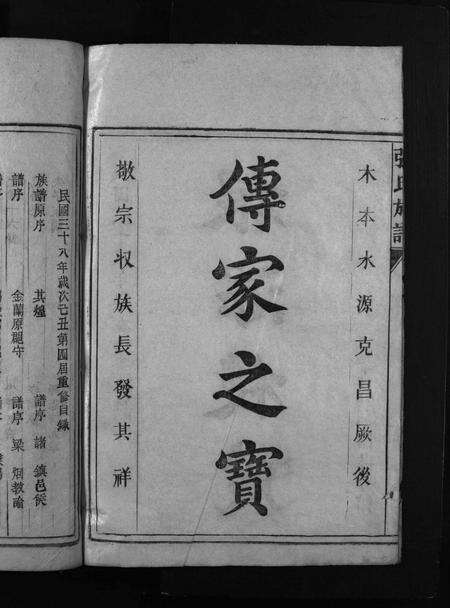 張氏族譜
木本水源克昌厥後
傳家之寶
敬宗収族長發其祥
民國三十八年歲次己丑第四屆重修目錄
族譜原序 其煃 譜序 諸 鎮邑侯
譜序 金蘭原 守 譜序 梁 烱教諭